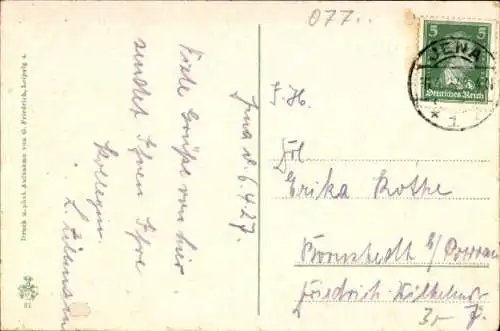 077..
JENA
5 5
Deutsches Reich
* 1.
Jena d. 6.4.27.
Viele Grüße von hier
sendet Ihnen Ihre
Kollegin
L.
F. H.
Frl.
Erika Rothe
Bornstedt b/
Friedrich-Wilhelmstr
Druck u. phot. Aufnahme von G. Friedrich, Leipzig 4.
81